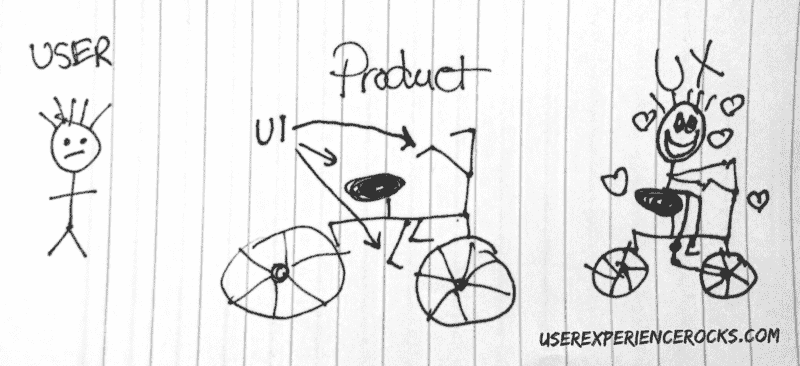 USER
Product
UI
UX
USEREXPERIENCEROCKS.COM